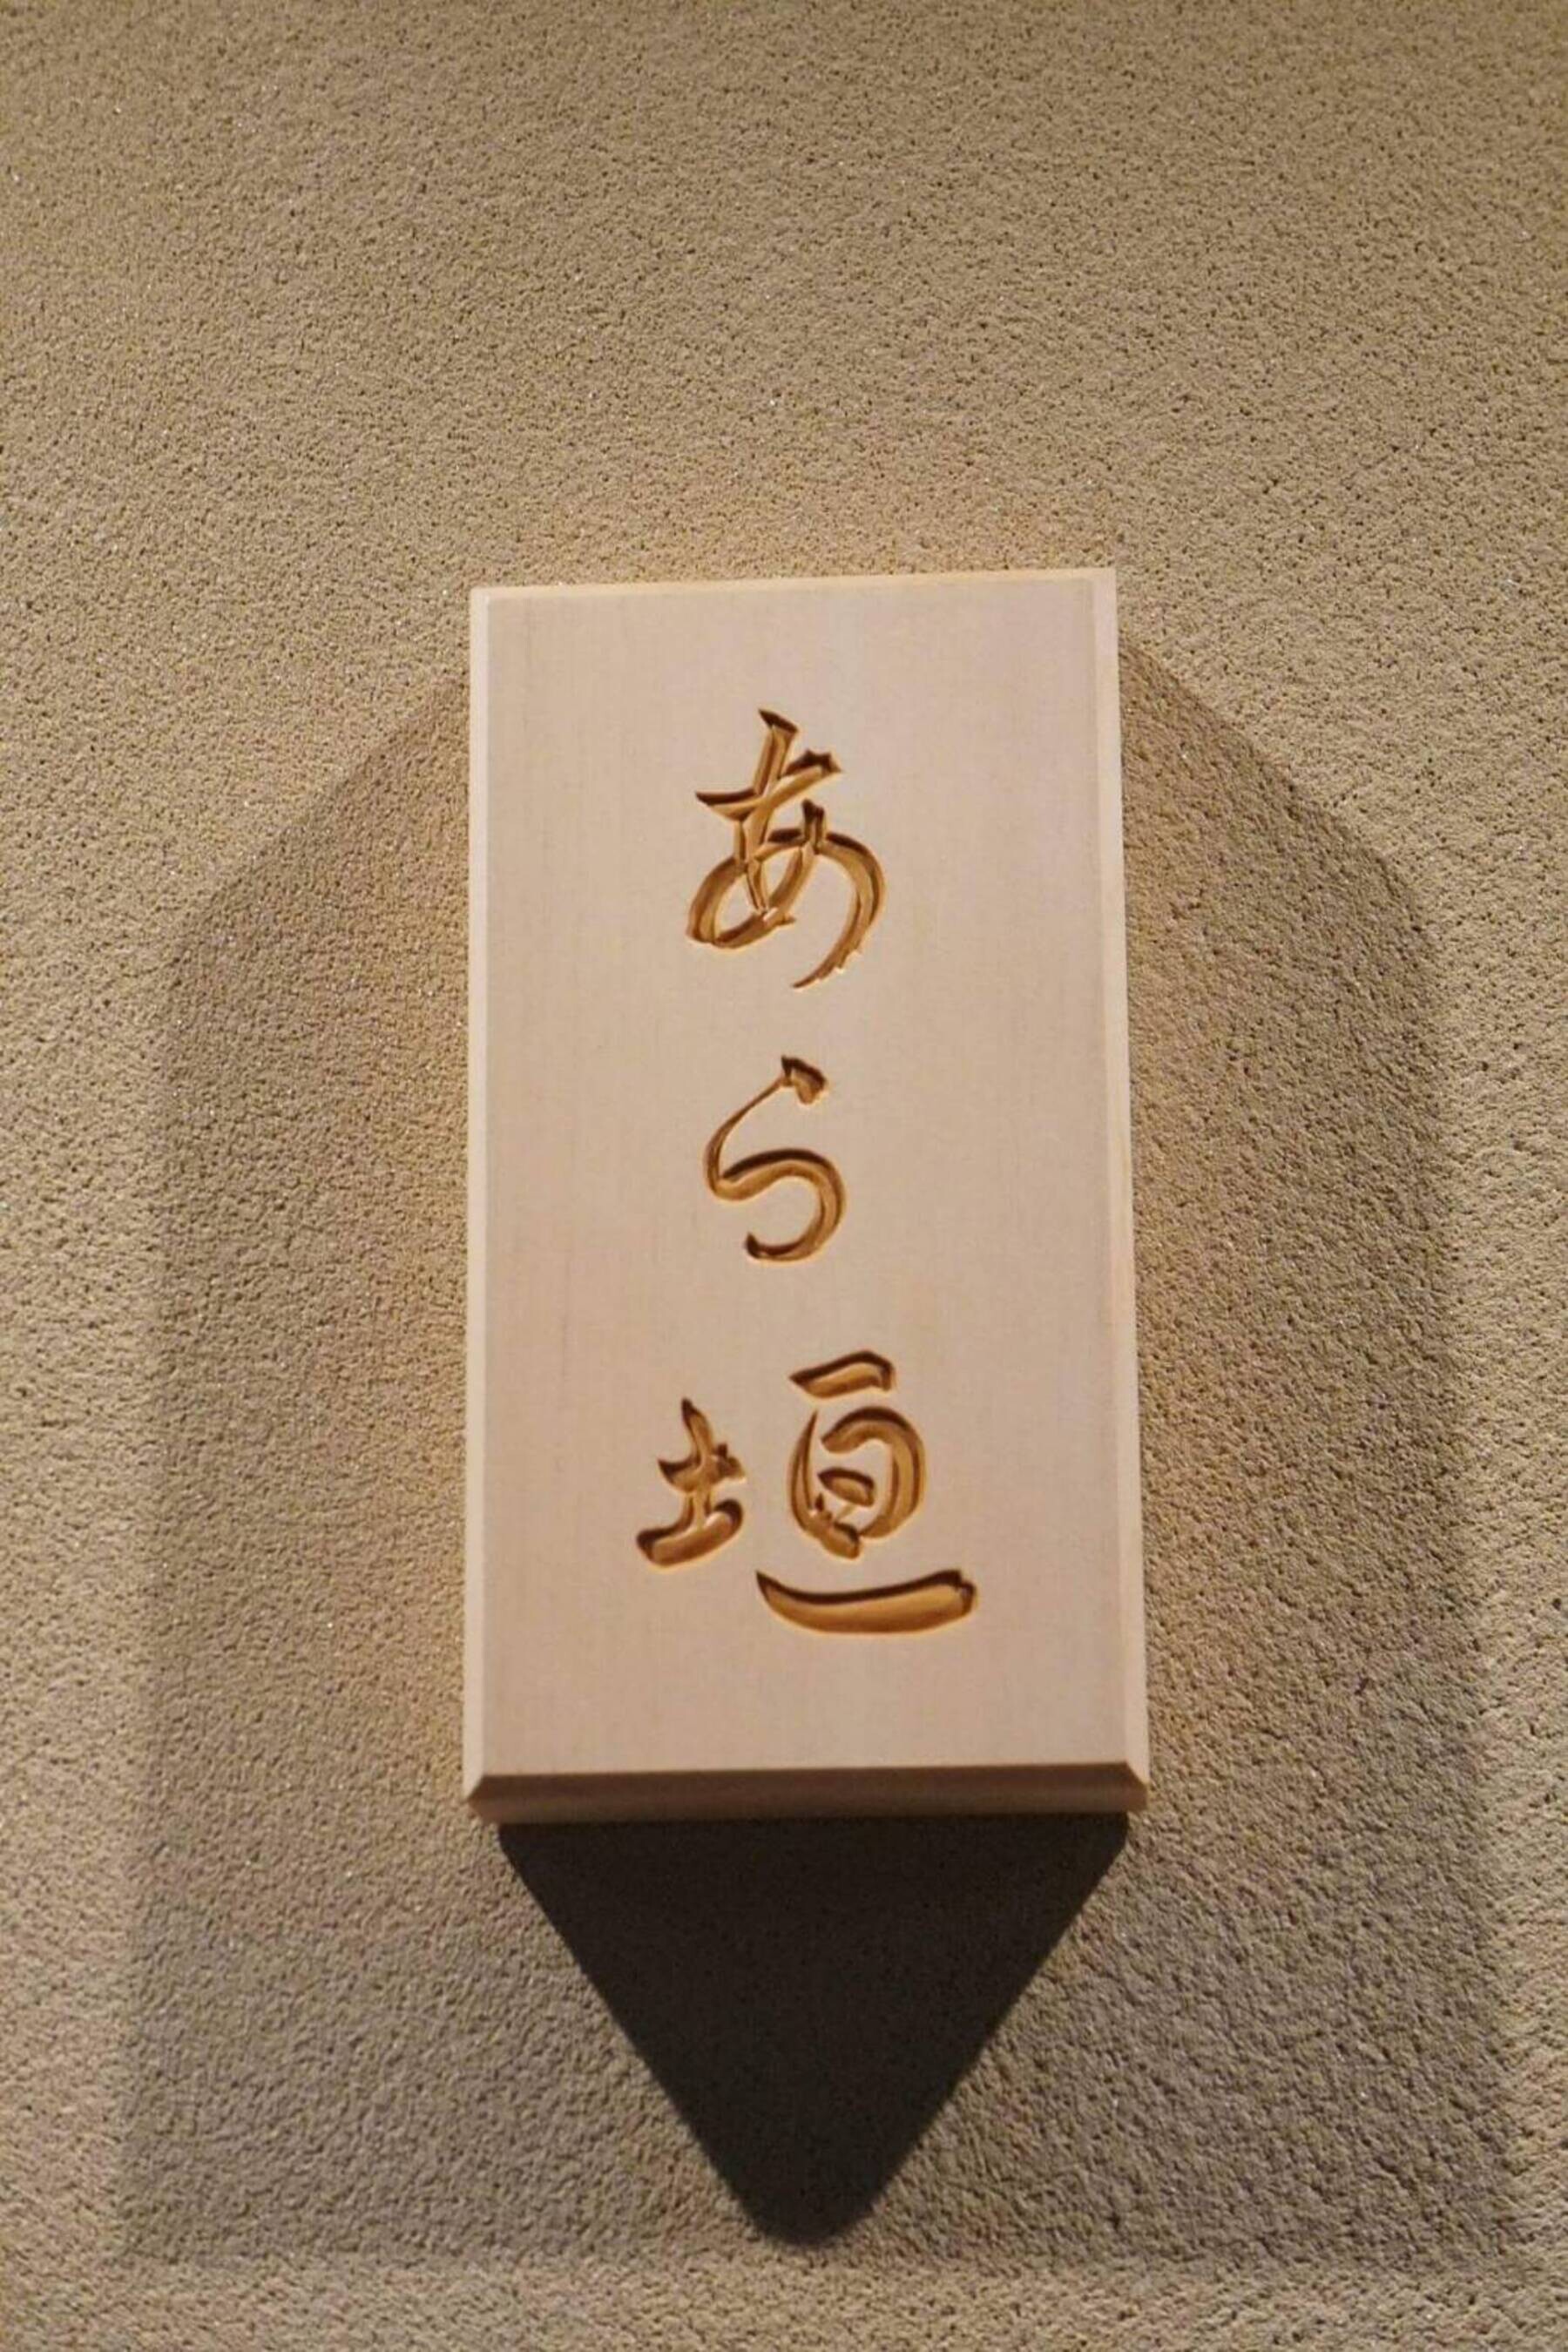 あら垣